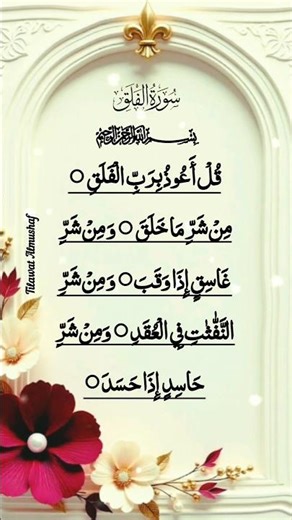 سُورَةُ الْفَلَقِ
بِسْمِ اللَّهِ الرَّحْمَٰنِ الرَّحِيمِ
قُلْ أَعُوذُ بِرَبِّ الْفَلَقِ ○
مِنْ شَرِّ مَا خَلَقَ ○ وَمِنْ شَرِّ
غَاسِقٍ إِذَا وَقَبَ ○ وَمِنْ شَرِّ
النَّفّٰثٰتِ فِي الْعُقَدِ ○ وَمِنْ شَرِّ
حَاسِدٍ إِذَا حَسَدَ ○
Tilawat Almushaf